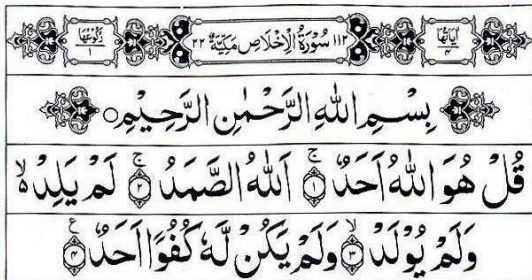 اٰیَاتُهَا ۴ ۱۱۲ سُوْرَةُ الْاِخْلَاصِ مَكِّيَّةٌ ۲۲ رُكُوْعُهَا ۱
بِسْمِ اللهِ الرَّحْمٰنِ الرَّحِيْمِ
قُلْ هُوَ اللهُ اَحَدٌ ۚ ۱ اَللهُ الصَّمَدُ ۚ ۲ لَمْ يَلِدْ ەۙ
وَلَمْ يُوْلَدْ ۙ ۳ وَلَمْ يَكُنْ لَّهٗ كُفُوًا اَحَدٌ ۴ ع